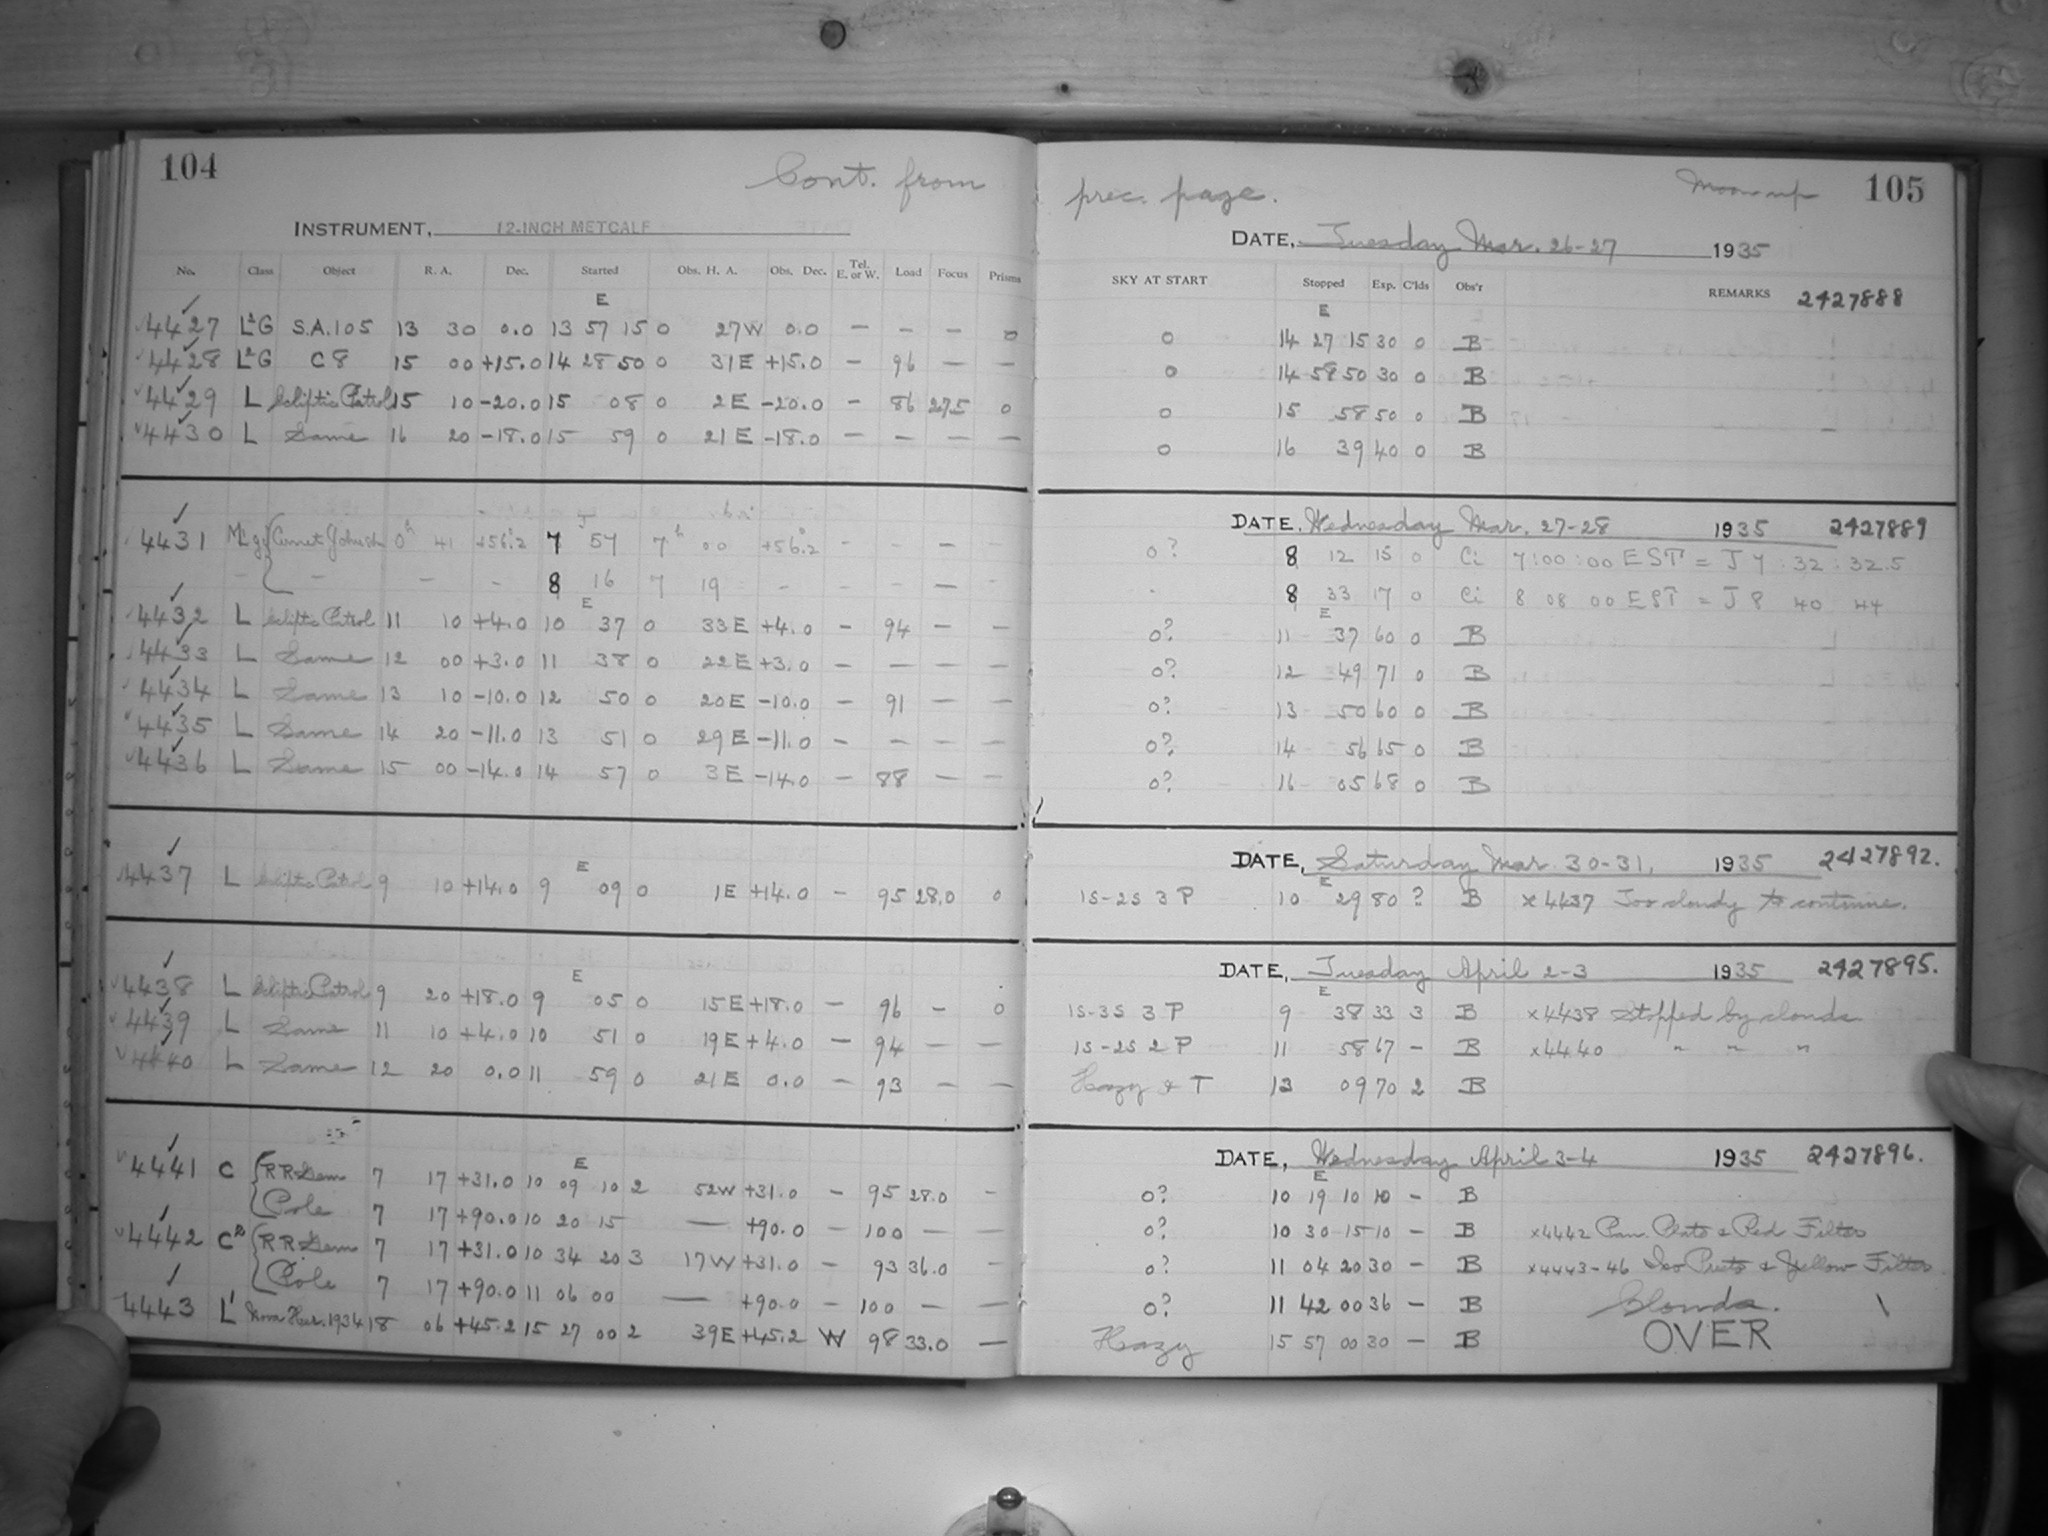 104
Cont. from
INSTRUMENT, 12-INCH METCALF
No. Class Object R. A. Dec. Started Obs. H. A. Obs. Dec. Tel. E. or W. Load Focus Prisms
E
4427 L²G S.A.105 13 30 0.0 13 57 15 0 27W 0.0 — — — 0
4428 L²G C8 15 00 +15.0 14 28 50 0 31E +15.0 — 96 — —
4429 L Ecliptic Patrol 15 10 -20.0 15 08 0 2E -20.0 — 86 27.5 0
4430 L Same 16 20 -18.0 15 59 0 21E -18.0 — — — —
4431 Comet Johnson 0h 41 +56.2 7 57 7h 00 +56.2 - - — -
— — — - 8 16 7 19 - - - — -
E
4432 L Ecliptic Patrol 11 10 +4.0 10 37 0 33E +4.0 — 94 — —
4433 L Same 12 00 +3.0 11 38 0 22E +3.0 — — — —
4434 L Same 13 10 -10.0 12 50 0 20E -10.0 — 91 — —
4435 L Same 14 20 -11.0 13 51 0 29E -11.0 — — — —
4436 L Same 15 00 -14.0 14 57 0 3E -14.0 — 88 — —
E
4437 L Ecliptic Patrol 9 10 +14.0 9 09 0 1E +14.0 — 95 28.0 0
E
4438 L Ecliptic Patrol 9 20 +18.0 9 05 0 15E +18.0 — 96 — 0
4439 L Same 11 10 +4.0 10 51 0 19E +4.0 — 94 — —
4440 L Same 12 20 0.0 11 59 0 21E 0.0 — 93 — —
E
4441 C RR Gem 7 17 +31.0 10 09 10 2 52W +31.0 — 95 28.0 —
Pole 7 17 +90.0 10 20 15 — +90.0 — 100 — —
4442 Cᴿ RR Gem 7 17 +31.0 10 34 20 3 17W +31.0 — 93 36.0 —
Pole 7 17 +90.0 11 06 00 — +90.0 — 100 — —
4443 L' Nova Her. 1934 18 06 +45.2 15 27 00 2 39E +45.2 W 98 33.0 —
prec. page.
Moon up 105
DATE, Tuesday Mar. 26-27 1935
SKY AT START Stopped Exp. C'lds Obs'r REMARKS 2427888
E
0 14 27 15 30 0 B
0 14 58 50 30 0 B
0 15 58 50 0 B
0 16 39 40 0 B
DATE, Wednesday Mar. 27-28 1935 2427889
0? 8 12 15 0 Ci 7:00:00 EST = J 7:32:32.5
8 33 17 0 Ci 8 08 00 EST = J 8 40 44
E
0? 11 37 60 0 B
0? 12 49 71 0 B
0? 13 50 60 0 B
0? 14 56 65 0 B
0? 16 05 68 0 B
DATE, Saturday Mar. 30-31, 1935 2427892.
E
1S-2S 3 P 10 29 80 ? B x 4437 Too cloudy to continue.
DATE, Tuesday April 2-3 1935 2427895.
E
1S-3S 3 P 9 38 33 3 B x4438 Stopped by clouds
1S-2S 2 P 11 58 67 — B x4440 " " "
Hazy & T 13 09 70 2 B
DATE, Wednesday April 3-4 1935 2427896.
E
0? 10 19 10 10 — B
0? 10 30 15 10 — B x4442 Pan. Plate & Red Filter
0? 11 04 20 30 — B x4443-46 Iso Plate & Yellow Filter
0? 11 42 00 36 — B Clouds.
Hazy 15 57 00 30 — B OVER